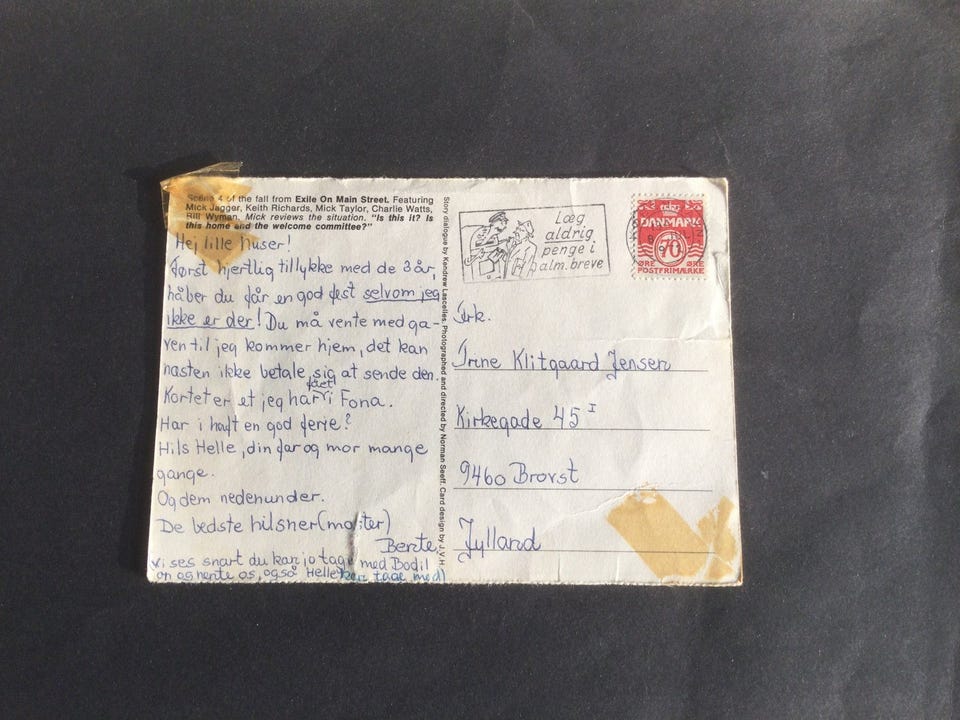 Scene 4 of the fall from Exile On Main Street. Featuring
Mick Jagger, Keith Richards, Mick Taylor, Charlie Watts,
Bill Wyman. Mick reviews the situation. "Is this it? Is
this home and the welcome committee?"
Hej lille nuser!
Først hjertlig tillykke med de 3 år,
håber du får en god fest selvom jeg
ikke er der! Du må vente med ga-
ven til jeg kommer hjem, det kan
næsten ikke betale sig at sende den.
Kortet er et jeg har fået i Fona.
Har i haft en god ferie?
Hils Helle, din far og mor mange
gange.
Og dem nedenunder.
De bedste hilsner
Bente,
vi ses snart du kan jo tage med Bodil
og hente os, også Helle kan tage med)
Story dialogue by Kendrew Lascelles. Photographed and directed by Norman Seeff. Card design by J.V.H.
Læg
aldrig
penge i
alm. breve
DANMARK
70
ØRE ØRE
POSTFRIMÆRKE
Frk.
Trine Klitgaard Jensen
Kirkegade 45 I
9460 Brovst
Jylland